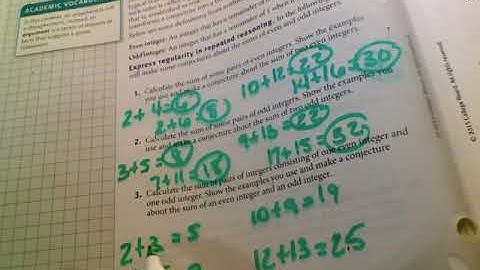 ACADEMIC VOCABULARY
Even integer: An integer that has a remainder of
Odd integer: An integer that has a remainder of 1 when
Express regularity in repeated reasoning. In the following
will make some conjectures about the sum of even and odd integers.
1. Calculate the sum of some pairs of even integers. Show the examples
you use and make a conjecture about the sum of two even integers.
2 + 4 = 6
2 + 6 = 8
10 + 12 = 22
14 + 16 = 30
2. Calculate the sum of some pairs of odd integers. Show the examples you
use and make a conjecture about the sum of two odd integers.
3 + 5 = 8
7 + 11 = 18
9 + 13 = 22
17 + 15 = 32
3. Calculate the sum of pairs of integers consisting of one even integer and
one odd integer. Show the examples you use and make a conjecture
about the sum of an even integer and an odd integer.
2 + 3 = 5
10 + 9 = 19
12 + 13 = 25